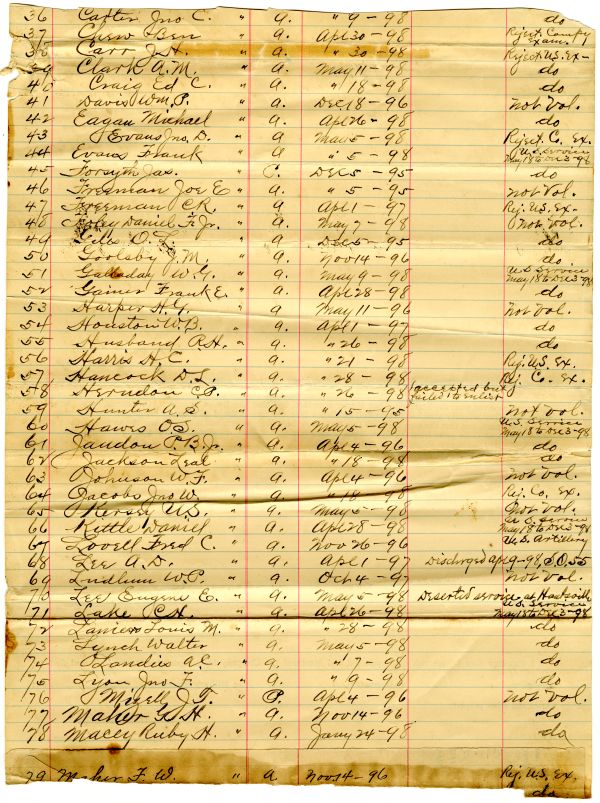 36 Carter Jno C. " a. " 9 - 98 do
37 Chew Ben " a. Apl 30 - 98 Reject. Compy Exam.
38 Carr J. H. " a. " 30 - 98 Reject. U.S. Ex -
39 Clark A. M. " a. May 11 - 98 do
40 Craig Ed C. " a. " 18 - 98 do
41 Davis Wm P. " a. Dec 18 - 96 Not Vol.
42 Eagan Michael " a. Apl 26 - 98 do
43 Evans Jno. D. " a. May 5 - 98 Reject. Co. Ex.
44 Evans Frank " a. " 5 - 98 U.S. Service May 18 to Dec 3 - 98
45 Forsyth Jas. " C. Dec 5 - 95 do
46 Freeman Joe E " a. " 5 - 95 Not Vol.
47 Freeman C.R. " a. Apl 1 - 97 Rej. U.S. Ex -
48 Foley Daniel F. Jr. " a. May 7 - 98 Not Vol.
49 O. L. " a. Dec 5 - 95 do
50 Goolsby J. M. " a. Nov 14 - 96 do
51 Galladay W. G. " a. May 9 - 98 U.S. Service May 18 to Dec 3 - 98
52 Gainer Frank E. " a. Apl 28 - 98 do
53 Harper H. Y. " a. May 11 - 96 Not Vol.
54 Houston W. B. " a. Apl 1 - 97 do
55 Husband R. H. " a. " 26 - 98 do
56 Harris H. C. " a. " 21 - 98 Rej. U.S. Ex.
57 Hancock D. S. " a. " 28 - 98 Rej. Co. Ex.
58 Herndon C. P. " a. " 26 - 98 accepted but failed to enlist
59 Hunter A. S. " a. " 15 - 95 Not Vol.
60 Hawes O. S. " a. May 5 - 98 U.S. Service May 18 to Dec 3 - 98
61 Jaudon P. B. Jr. " a. Apl 4 - 96 do
62 Jackson Leal " a. " 18 - 98 do
63 Johnson W. F. " a. Apl 4 - 96 Not Vol.
64 Jacobs Jno W. " a. " 18 - 98 Rej. Co. Ex.
65 Kersey U. S. " a. May 5 - 98 Not Vol.
66 Kittle Daniel " a. Apl 28 - 98 U.S. Service May 18 to Dec 3 - 98
67 Lovell Fred C. " a. Nov 26 - 96 U.S. Artillery
68 Lee A. D. " a. Apl 1 - 97 Dischrged Apl 9 - 98, S.O. 55
69 Ludlum W. P. " a. Oct 4 - 97 Not Vol.
70 Lee Eugene E. " a. May 5 - 98 Deserted service at
71 Lake R. H. " a. Apl 26 - 98 U.S. Service May 18 to Dec 3 - 98
72 Lanier Louis M. " a. " 28 - 98 do
73 Lynch Walter " a. May 5 - 98 do
74 Landies A. C. " a. " 7 - 98 do
75 Lyon Jno. F. " a. " 9 - 98 do
76 Mizell J. T. " P. Apl 4 - 96 Not Vol.
77 Maher G. H. " a. Nov 14 - 96 do
78 Macey Ruby H. " a. Jany 24 - 98 do
79 Maher F. W. " a. Nov 14 - 96 Rej. U.S. Ex.
do